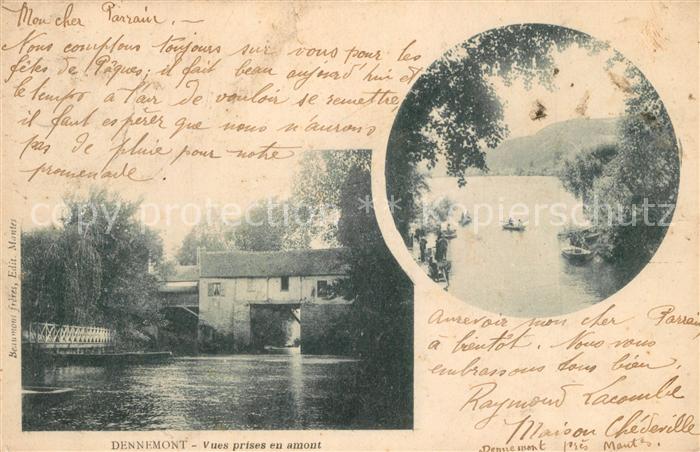 Mon cher Parrain. —
Nous comptons toujours sur vous pour les
fêtes de Pâques; il fait beau aujourd'hui et
le temps a l'air de vouloir se remettre
il faut espérer que nous n'aurons
pas de pluie pour notre
promenade.
copy protected * Kopierschutz
Beaumont frères, Edit. Mantes
Aurevoir mon cher Parrain
à bientôt. Nous vous
embrassons tous bien.
Raymond Lacombe
Maison Chédeville
Dennemont près Mantes.
DENNEMONT - Vues prises en amont